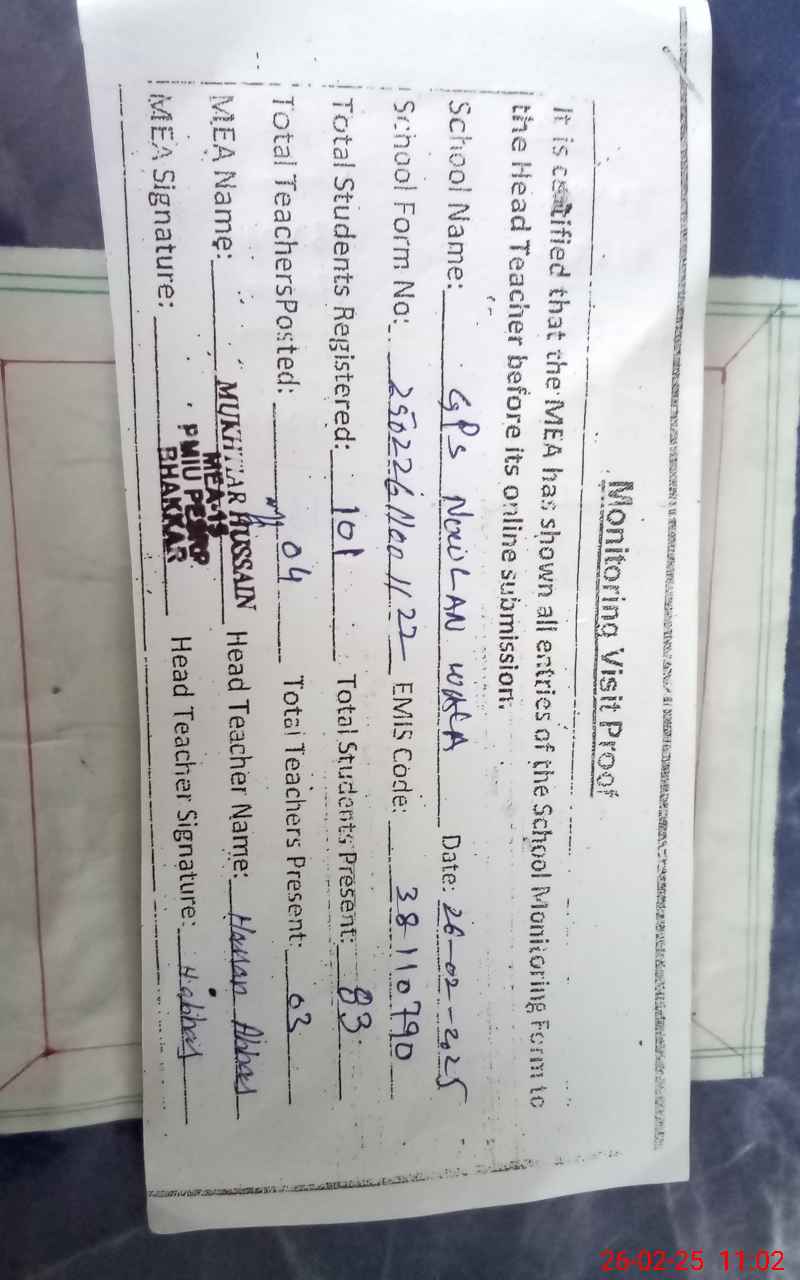 Monitoring Visit Proof
It is certified that the MEA has shown all entries of the School Monitoring Form to
the Head Teacher before its online submission.
School Name: GPS NawLAN WALA Date: 26-02-2025
School Form No: EMIS Code: 38110790
Total Students Registered: 101 Total Students Present: 83
Total Teachers Posted: 04 Total Teachers Present: 03
MEA Name: MUKHTAR HUSSAIN Head Teacher Name: Hassan Abbas
MEA-13
PMIU PESRP
BHAKKAR
MEA Signature: Head Teacher Signature: H.abbas
26-02-25 11:02